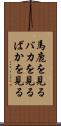 馬鹿を見る
バカを見る
ばかを見る